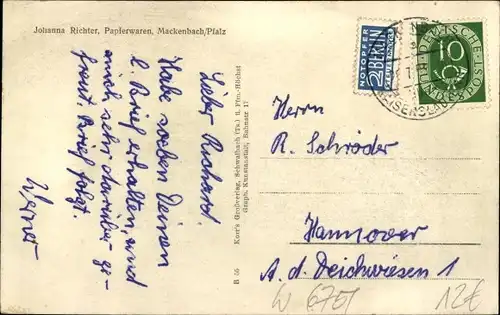 Johanna Richter, Papierwaren, Mackenbach/Pfalz
Lieber Richard.
Habe soeben Deinen
l. Brief erhalten und
mich sehr darüber ge-
freut. Brief folgt.
Werner
Knorr's Großverlag, Schwalbach (Ts.) ü. Ffm.-Höchst
Graph. Kunstanstalt, Bahnstr. 17
B 56
NOTOPFER
2 BERLIN
STEUERMARKE
DEUTSCHE POST
10
Herrn
R. Schröder
Hannover
A. d. Deichwiesen 1
W 6751
12€